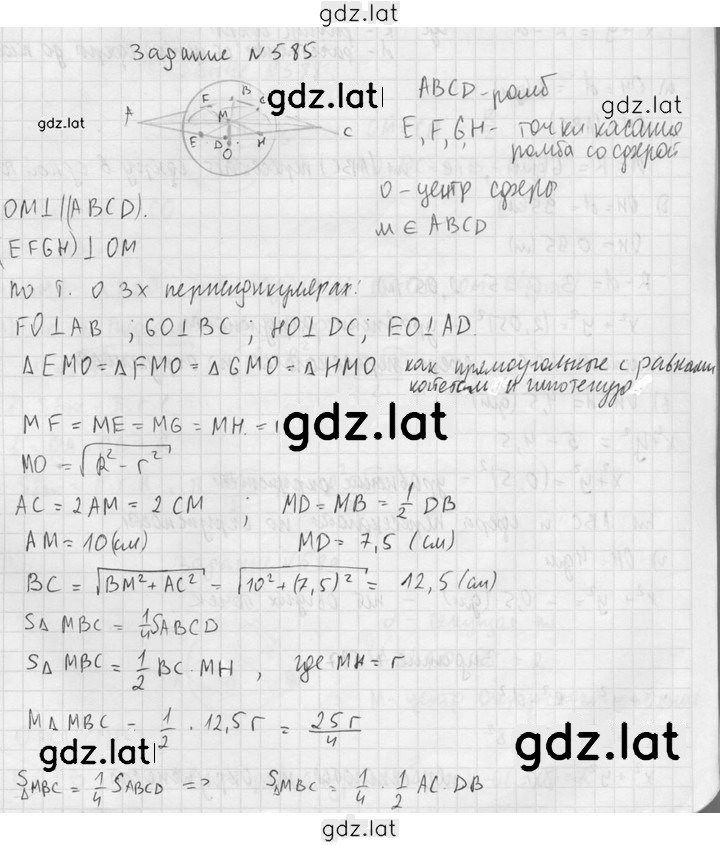 gdz.lat
Задание N585
gdz.lat
gdz.lat
gdz.lat
A F B G M E D H O C
ABCD-ромб
E, F, G, H - точки касания
ромба со сферой
O-центр сферы
M ∈ ABCD
OM⊥(ABCD).
(EFGH)⊥OM
по т. о 3х перпендикулярах:
FO⊥AB ; GO⊥BC ; HO⊥DC, EO⊥AD.
ΔEMO=ΔFMO=ΔGMO=ΔHMO как прямоугольные с равными
катетом и гипотенузой
MF = ME = MG = MH =
gdz.lat
MO = √R²-r²
AC = 2AM = 2CM ; MD = MB = 1/2 DB
AM = 10(см) MD = 7,5 (см)
BC = √BM²+AC² = √10²+(7,5)² = 12,5(см)
SΔ MBC = 1/4 SABCD
SΔ MBC = 1/2 BC·MH , где MH = r
MΔ MBC = 1/2 · 12,5r = 25r/4
gdz.lat
gdz.lat
SΔMBC = 1/4 SABCD => SΔMBC = 1/4 · 1/2 AC·DB
gdz.lat